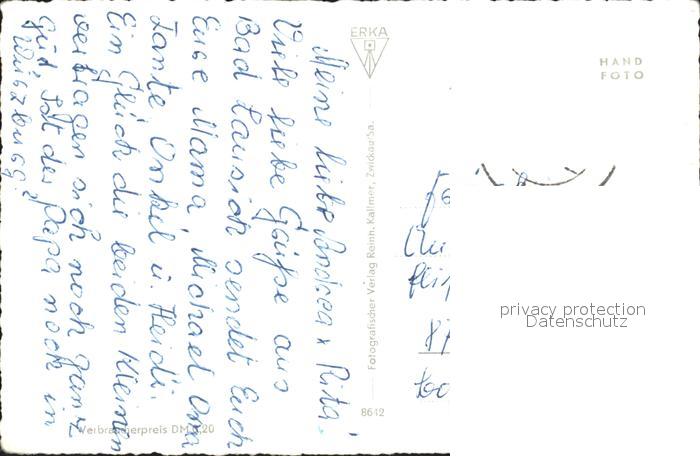 Meine liebe Andrea u Rita!
Viele liebe Grüße aus
Bad Lausick sendet Euch
Eure Mama, Michael Oma
Tante Onkel u. Heidi.
Ein Glück die beiden Kleinen
vertragen sich noch ganz
gut, ist der Papa noch in
Würzburg?
ERKA
HAND
FOTO
Fotografischer Verlag Reinh. Kallmer, Zwickau-Sa.
8642
Verbraucherpreis DM 0,20
privacy protection
Datenschutz